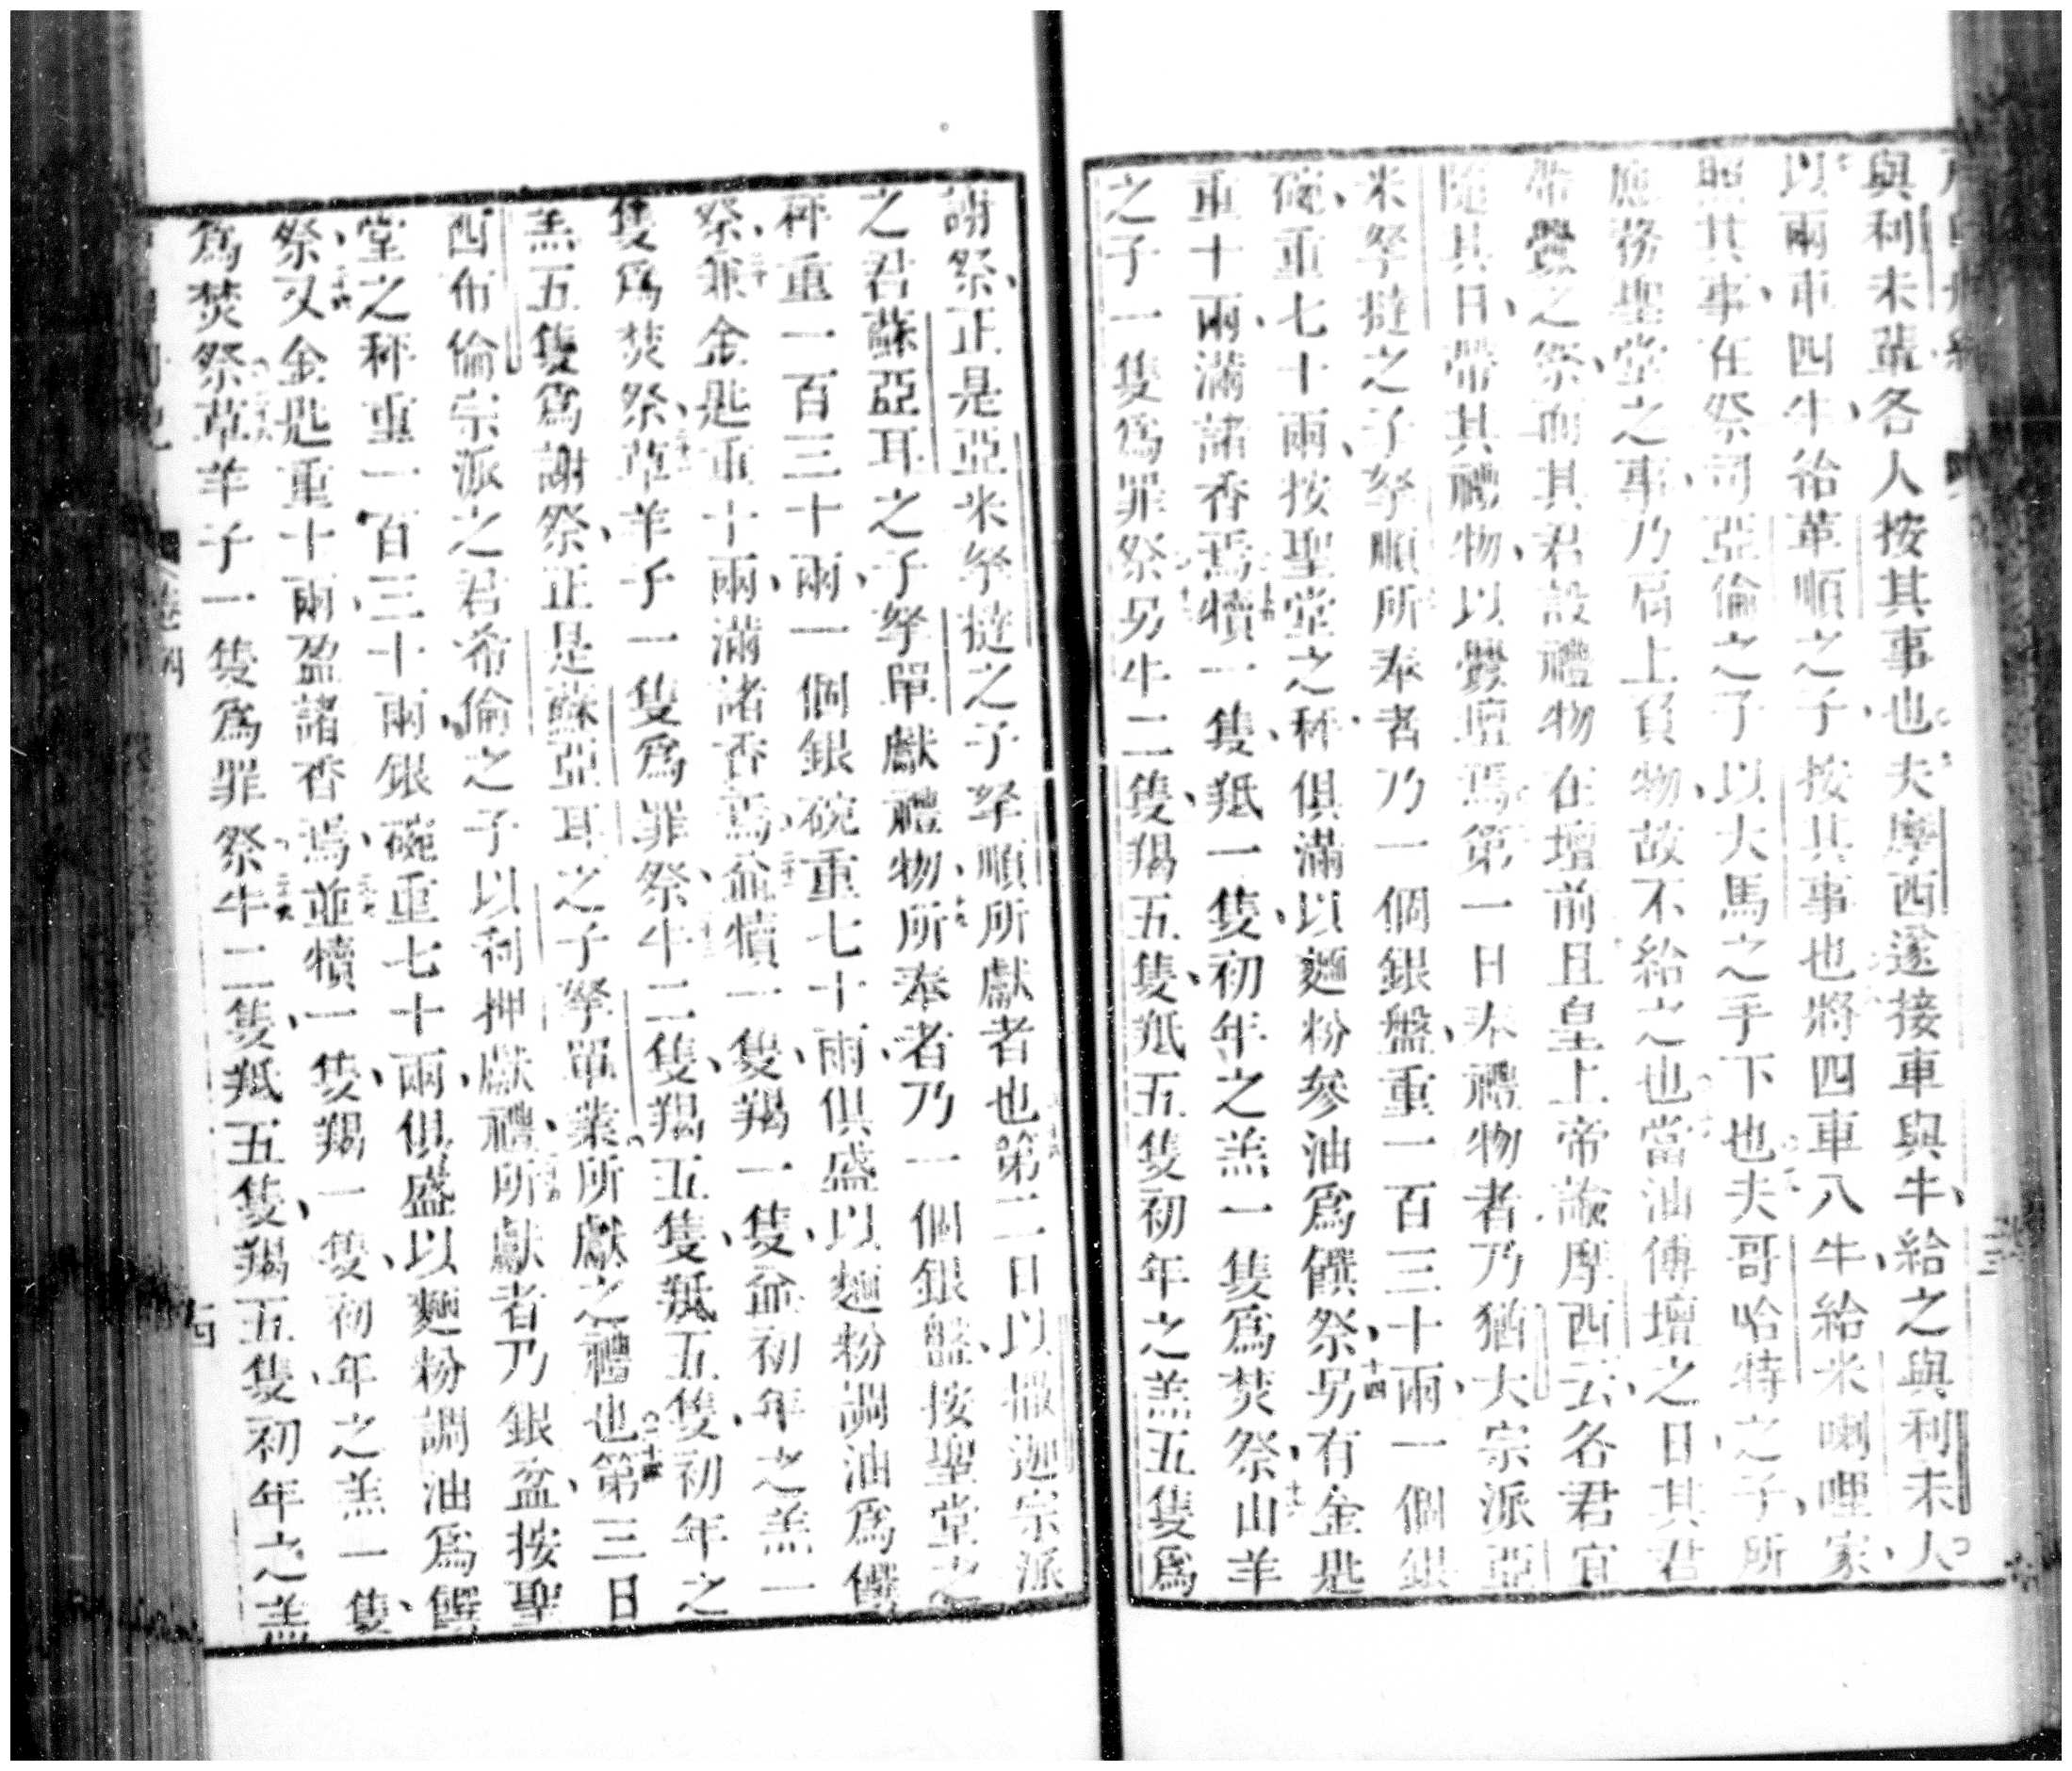 與利未輩各人按其事也夫摩西遂接車與牛給之與利未人
以兩車四牛給革順之子按其事也將四車八牛給米喇哩家
照其事在祭司亞倫之子以大馬之手下也夫哥哈特之子所
應務聖堂之事乃肩上負物故不給之也當油傅壇之日其君
帶釁之祭而其君設禮物在壇前且皇上帝諭摩西云各君宜
隨其日帶其禮物以釁壇焉第一日奉禮物者乃猶大宗派亞
米拏撻之子拏順所奉者乃一個銀盤重一百三十兩一個銀
碗重七十兩按聖堂之秤俱滿以麵粉參油為饌祭另有金匙
重十兩滿諸香焉犢一隻羝一隻初年之羔一隻為焚祭山羊
之子一隻為罪祭另牛二隻羯五隻羝五隻初年之羔五隻為
謝祭正是亞米拏撻之子拏順所獻者也第二日以撒迦宗派
之君蘇亞耳之子拏單獻禮物所奉者乃一個銀盤按聖堂之
秤重一百三十兩一個銀碗重七十兩俱盛以麵粉調油為饌
祭兼金匙重十兩滿諸香焉並犢一隻羯一隻並初年之羔一
隻為焚祭草羊子一隻為罪祭牛二隻羯五隻羝五隻初年之
羔五隻為謝祭正是蘇亞耳之子拏單業所獻之禮也第三日
西布倫宗派之君希倫之子以利押獻禮所獻者乃銀盆按聖
堂之秤重一百三十兩銀碗重七十兩俱盛以麵粉調油為饌
祭又金匙重十兩盈諸香焉並犢一隻羯一隻初年之羔一隻
為焚祭草羊子一隻為罪祭牛二隻羝五隻羯五隻初年之羔